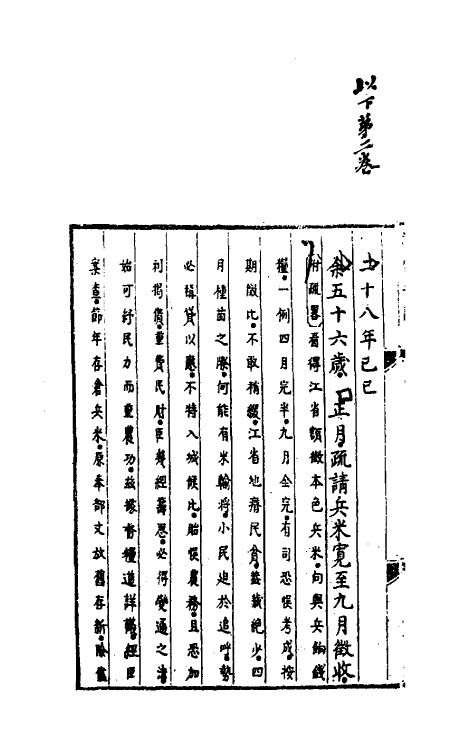 以下第二卷
二十八年己巳
余五十六歲正月疏請兵米寬至九月徵收
附疏畧看得江省額徵本色兵米向與兵餉錢
糧一例四月完半九月全完有司恐悞考成按
期徵比不敢稍緩江省地瘠民貧蓋藏絶少四
月種苗之際何能有米輸將小民迫於追呼勢
必稱貸以應不特入城候比貽悞農務且恐加
利揭債重費民財臣幾經籌思必得變通之法
始可紓民力而重農功茲據督糧道詳議經臣
案查節年存倉兵米原奉部文放舊存新除